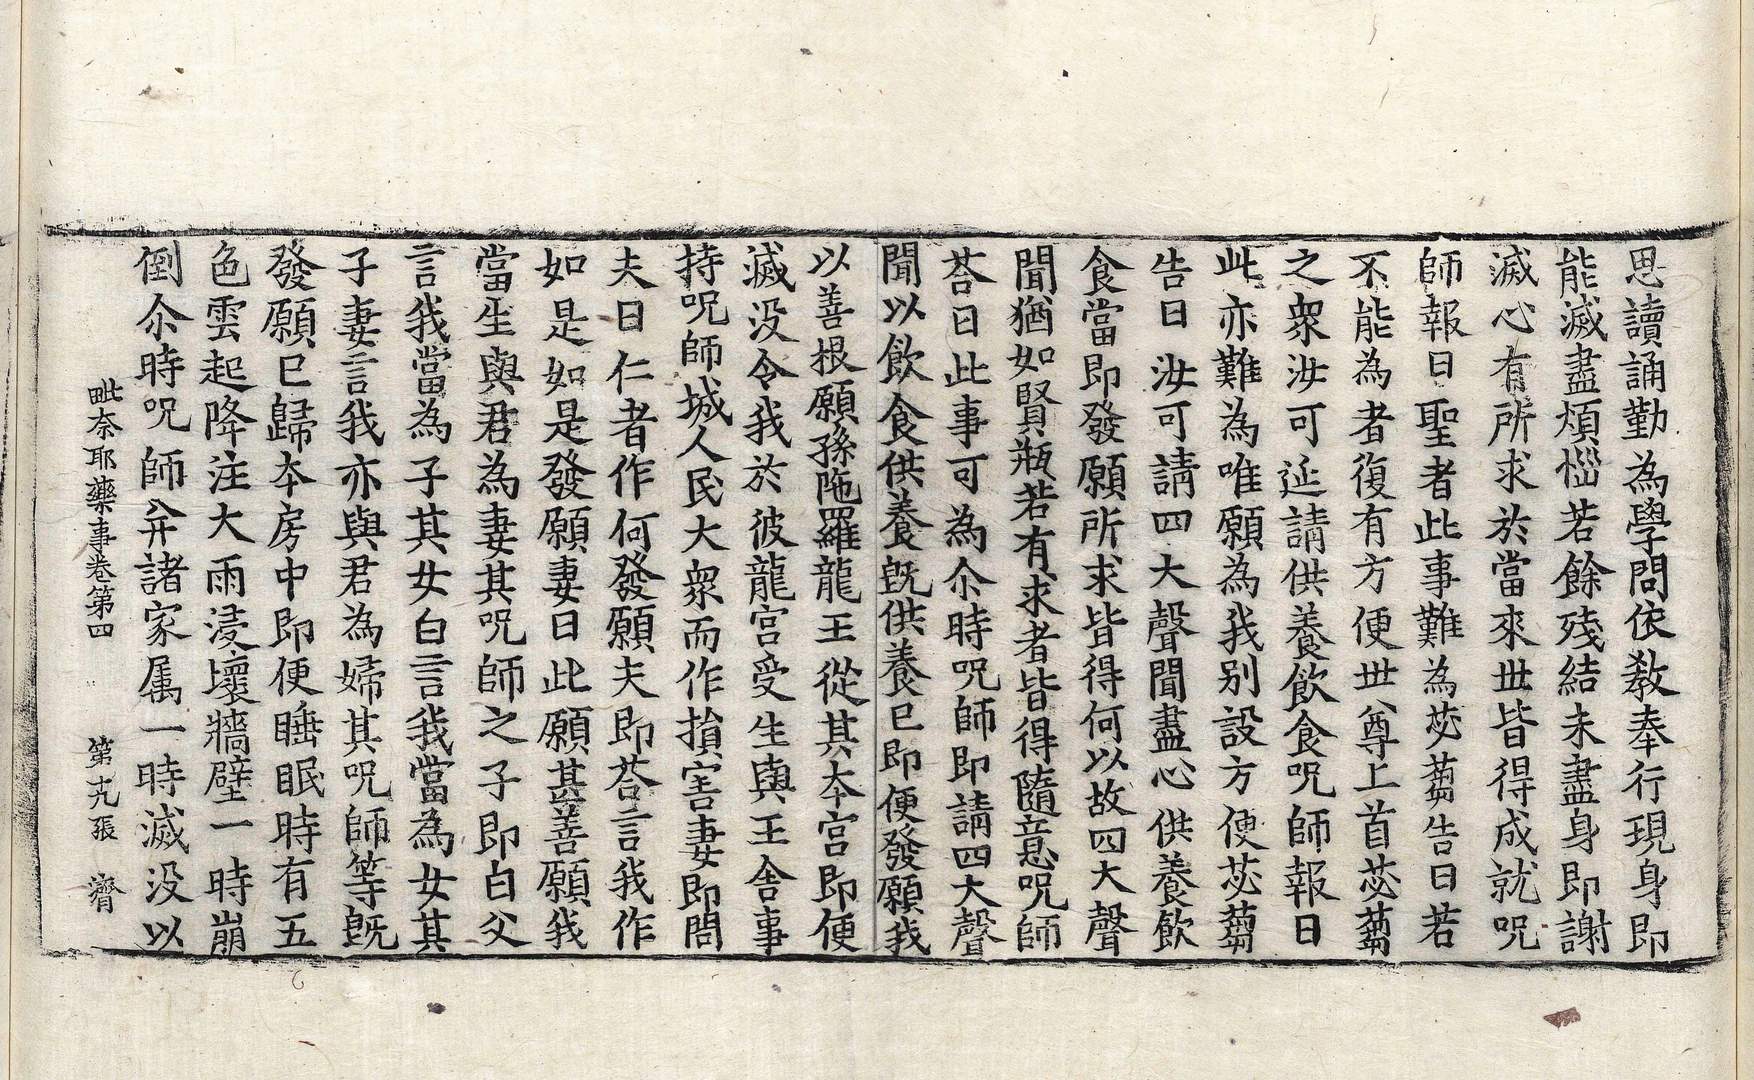 思讀誦勤為學問依教奉行現身即
能滅盡煩惱若餘殘結未盡身即謝
滅心有所求於當來世皆得成就呪
師報曰聖者此事難為苾蒭告曰若
不能為者復有方便世尊上首苾蒭
之衆汝可延請供養飲食呪師報曰
此亦難為唯願為我別設方便苾蒭
告曰汝可請四大聲聞盡心供養飲
食當即發願所求皆得何以故四大聲
聞猶如賢瓶若有求者皆得隨意呪師
荅曰此事可為尒時呪師即請四大聲
聞以飲食供養旣供養已即便發願我
以善根願孫陁羅龍王從其本宮即便
滅没令我於彼龍宮受生與王舍事
持呪師城人民大衆而作損害妻即問
夫曰仁者作何發願夫即荅言我作
如是如是發願妻曰此願甚善願我
當生與君為妻其呪師之子即白父
言我當為子其女白言我當為女其
子妻言我亦與君為婦其呪師等旣
發願已歸本房中即便睡眠時有五
色雲起降注大雨浸壞牆壁一時崩
倒尒時呪師并諸家属一時滅没以
毗奈耶藥事卷第四　第十九張　濟